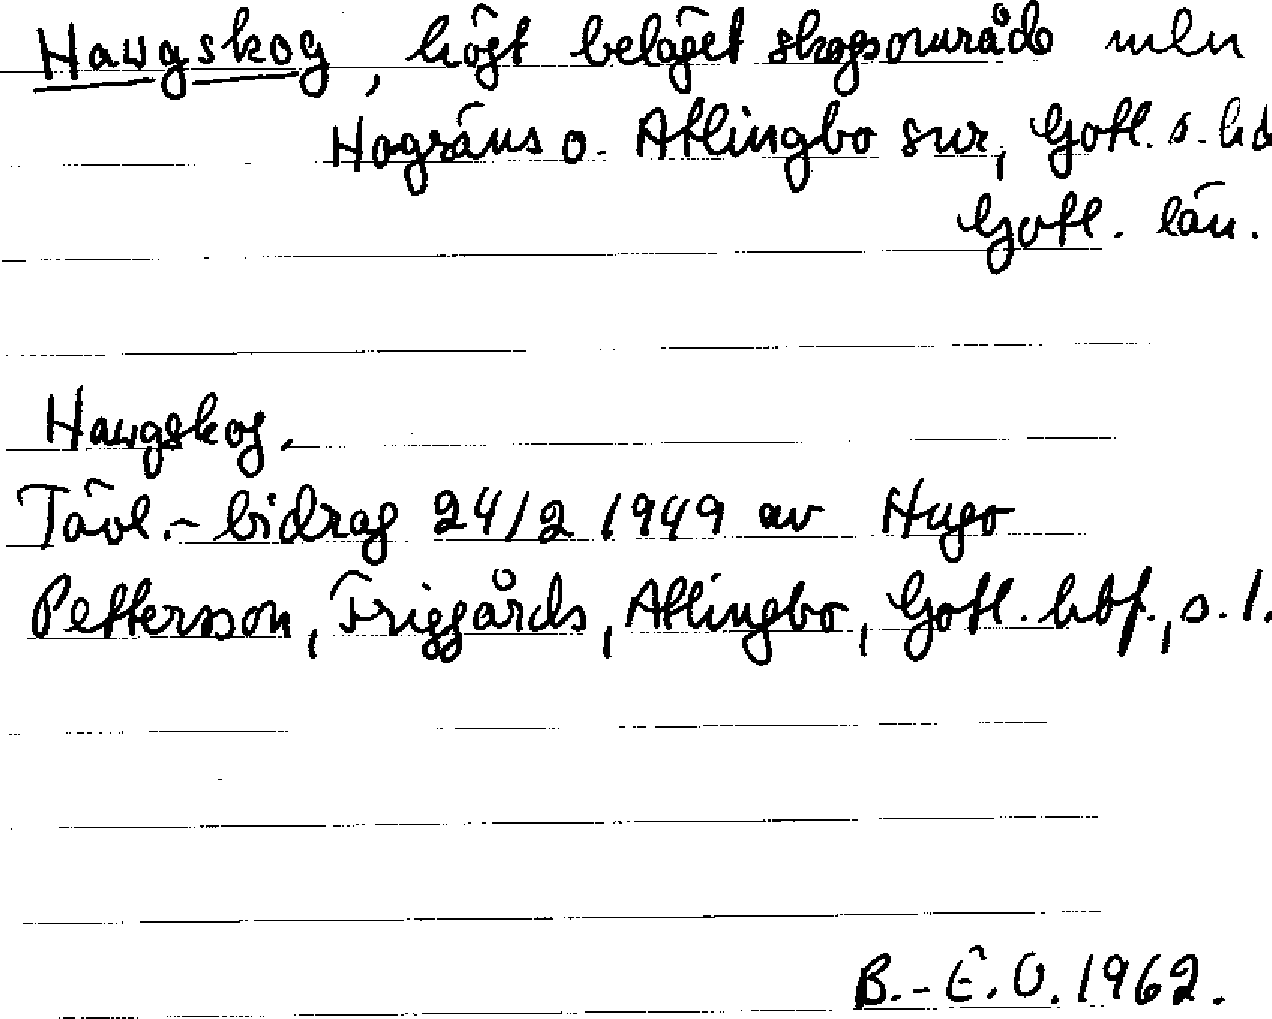 Haugskog, högt beläget skogsområde mln
Hogräns o. Atlingbo snr, Gotl. s. hd
Gotl. län.
Haugskog.
Tävl.-bidrag 24/2 1949 av Hugo
Pettersson, Friggårds, Atlingbo, Gotl. hbf., s. 1.
B.-E.O. 1962.